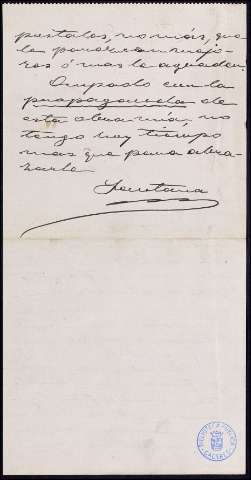 postales, no más, que
le parezcan mejo-
res ó mas le agraden.
Ocupado con la
propaganda de
esta obra mía, no
tengo hoy tiempo
mas que para abra-
zarle
Santana
BIBLIOTECA PUBLICA
CACERES